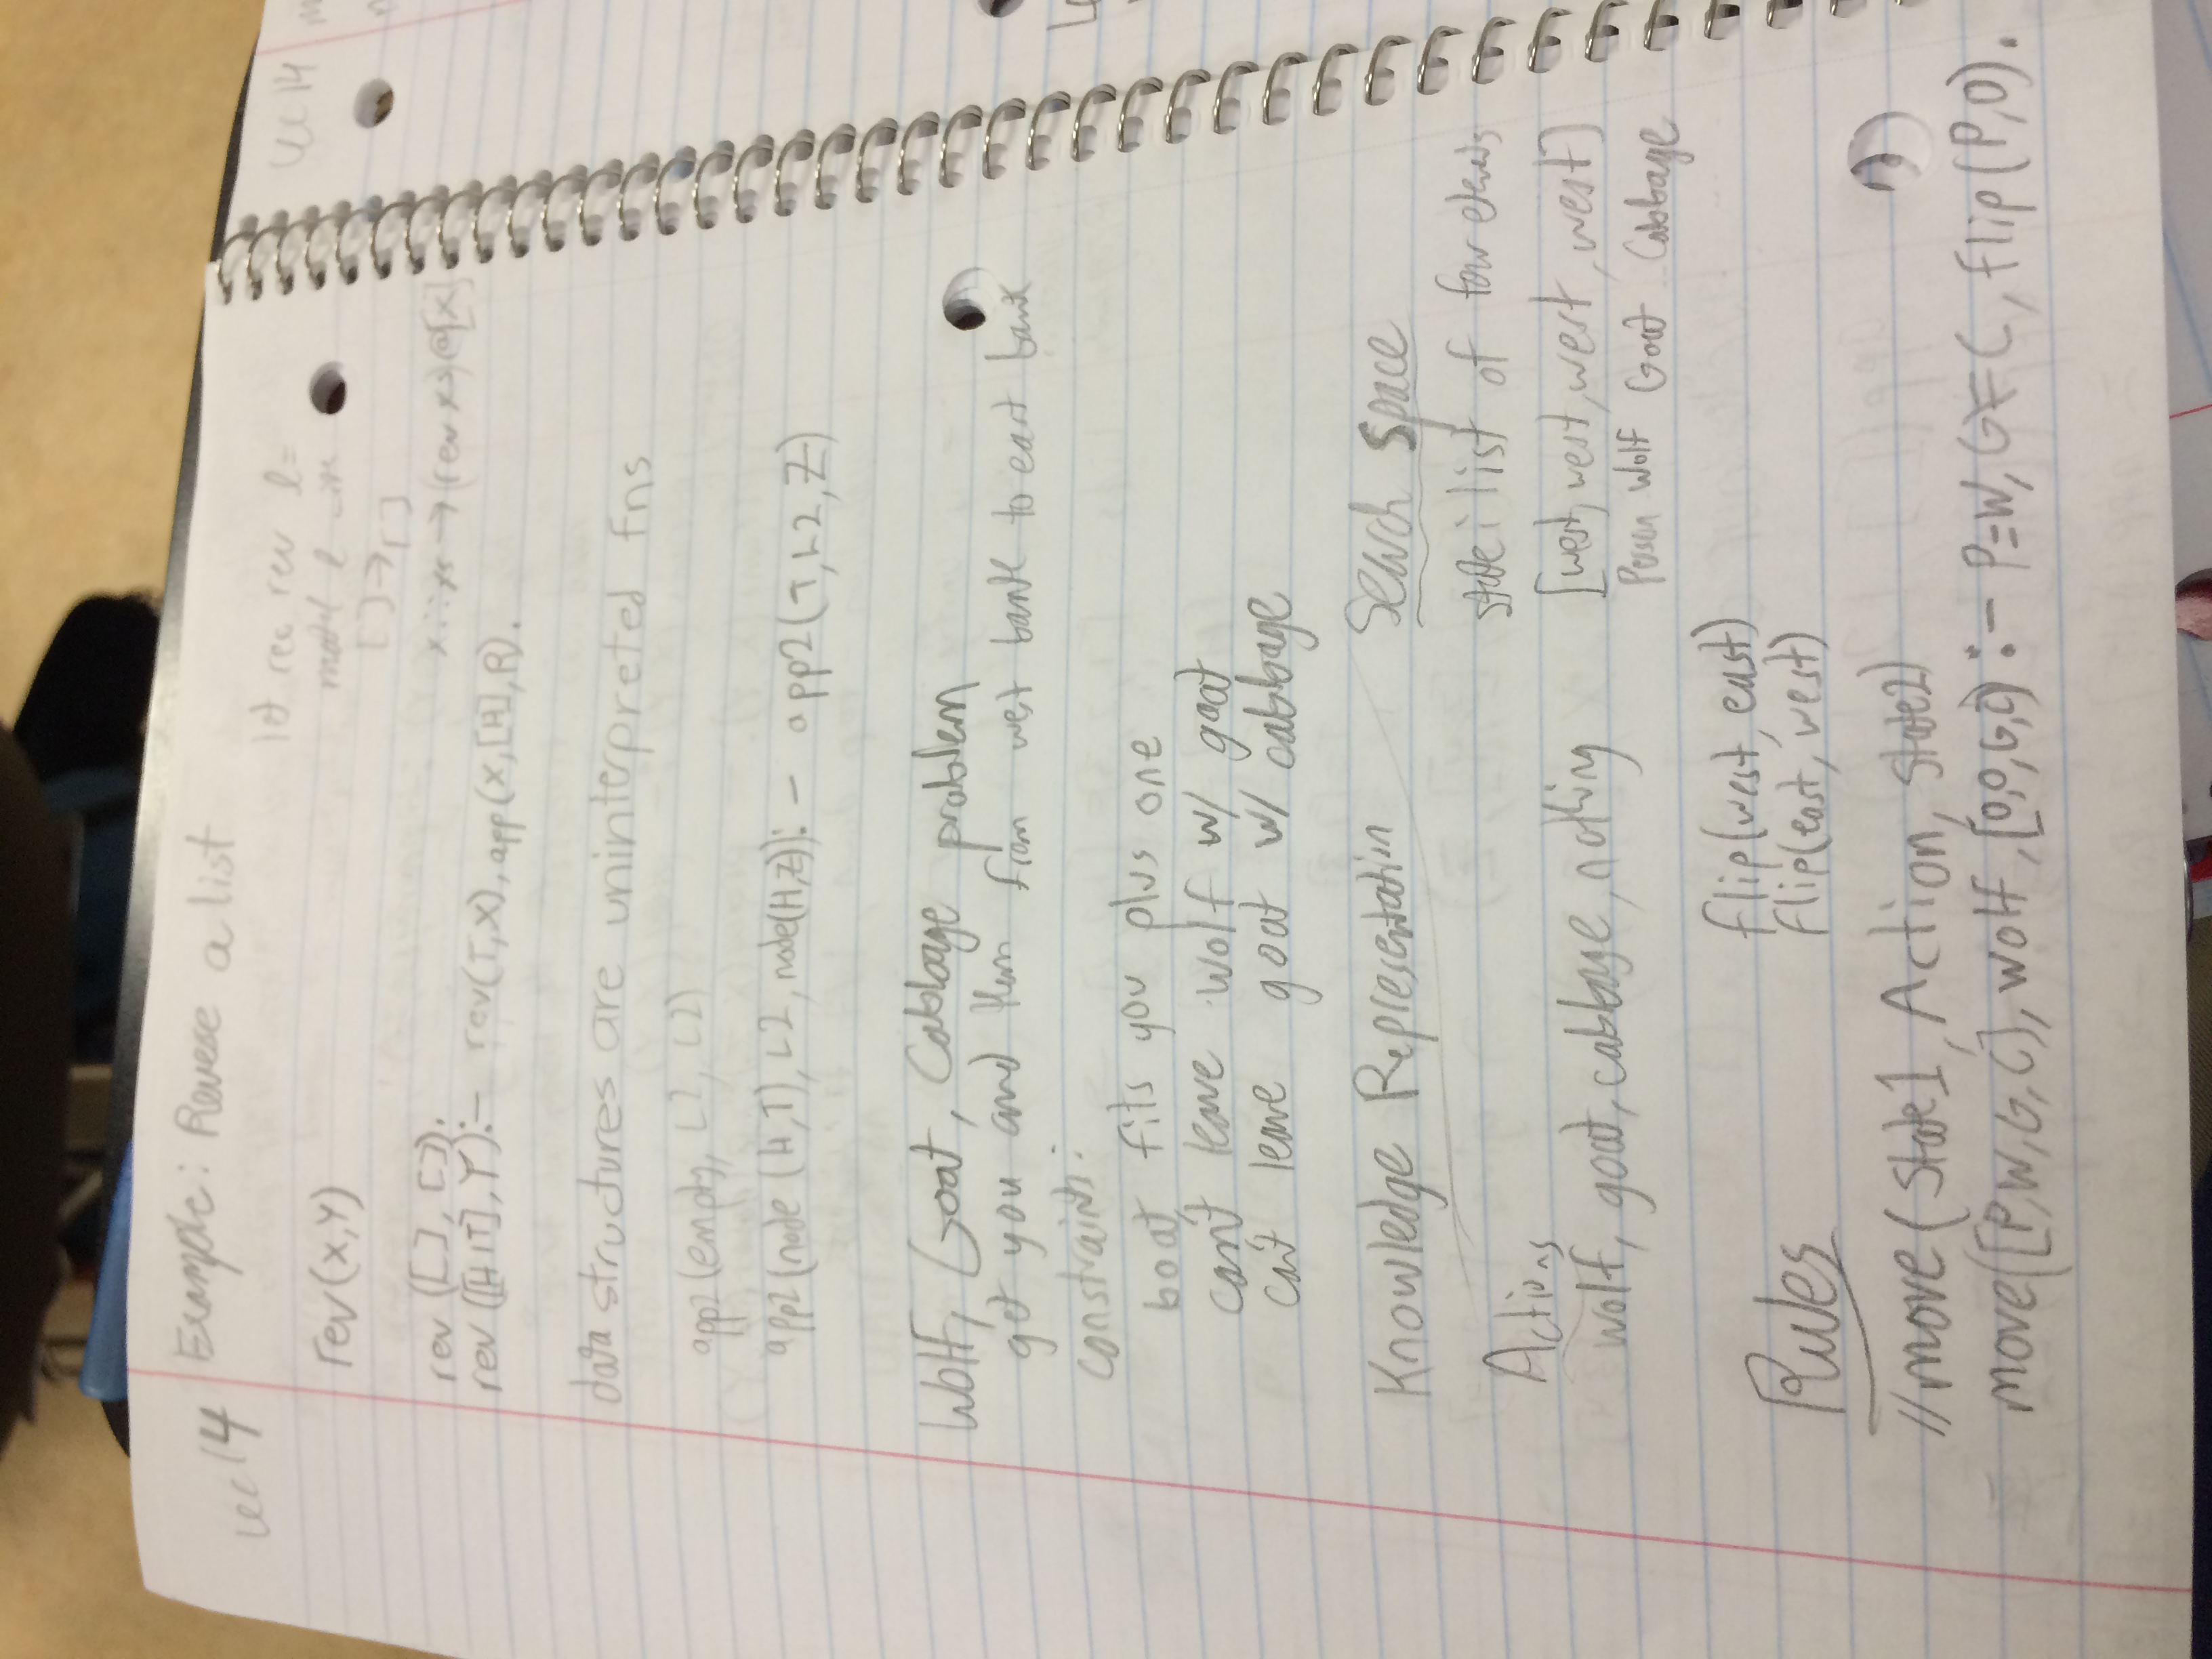 lec 14
Example: Reverse a list
let rec rev l =
rev(X,Y)
[] → []
rev([], []).
x::xs → (rev xs)@[x]
rev([H|T], Y):- rev(T,X), app(X,[H],R).
data structures are uninterpreted fns
app2(empty, L2, L2)
app2(node (H,T), L2, node(H,Z)):- app2(T,L2,Z)
Wolf, Goat, Cabbage problem
get you and them from west bank to east bank
constraints:
boat fits you plus one
can't leave wolf w/ goat
can't leave goat w/ cabbage
Knowledge Representation
Search Space
state: list of four elements
Actions
wolf, goat, cabbage, nothing
[west, west, west, west]
Person Wolf Goat Cabbage
flip(west, east)
flip(east, west)
Rules
//move(State1, Action, State2)
move([P,W,G,C], wolf, [O,O,G,C) :- P=W, G≠C, flip(P,O).
lec 14